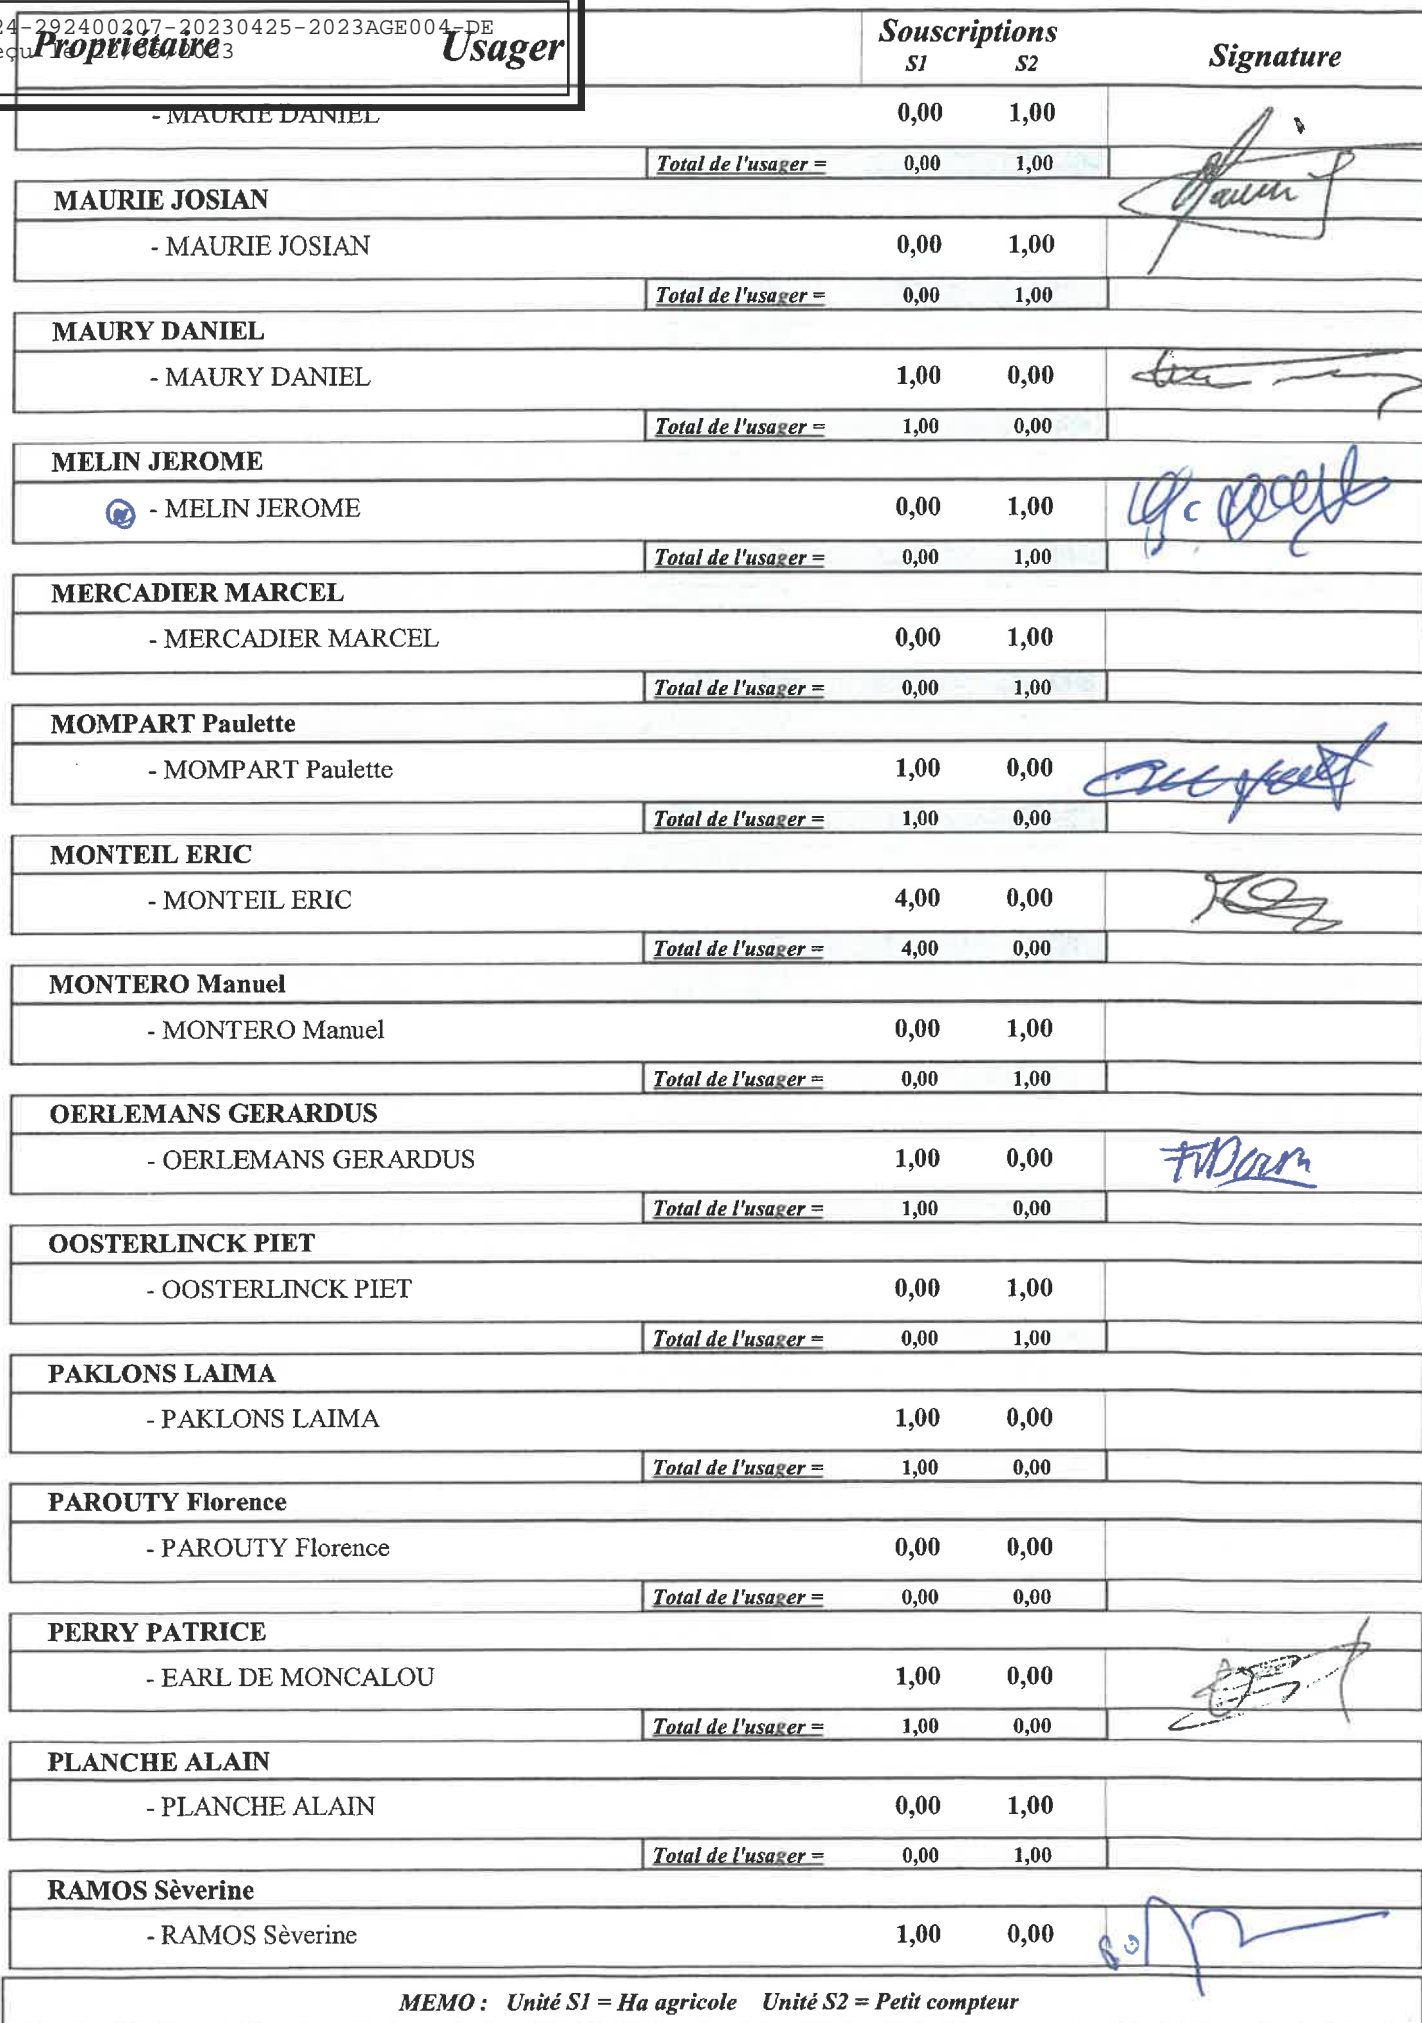 24-292400207-20230425-2023AGE004-DE
Propriétaire Usager Souscriptions
S1 S2 Signature
- MAURIE DANIEL 0,00 1,00
Total de l'usager = 0,00 1,00
MAURIE JOSIAN
- MAURIE JOSIAN 0,00 1,00
Total de l'usager = 0,00 1,00
MAURY DANIEL
- MAURY DANIEL 1,00 0,00
Total de l'usager = 1,00 0,00
MELIN JEROME
- MELIN JEROME 0,00 1,00
Total de l'usager = 0,00 1,00
MERCADIER MARCEL
- MERCADIER MARCEL 0,00 1,00
Total de l'usager = 0,00 1,00
MOMPART Paulette
- MOMPART Paulette 1,00 0,00
Total de l'usager = 1,00 0,00
MONTEIL ERIC
- MONTEIL ERIC 4,00 0,00
Total de l'usager = 4,00 0,00
MONTERO Manuel
- MONTERO Manuel 0,00 1,00
Total de l'usager = 0,00 1,00
OERLEMANS GERARDUS
- OERLEMANS GERARDUS 1,00 0,00
Total de l'usager = 1,00 0,00
OOSTERLINCK PIET
- OOSTERLINCK PIET 0,00 1,00
Total de l'usager = 0,00 1,00
PAKLONS LAIMA
- PAKLONS LAIMA 1,00 0,00
Total de l'usager = 1,00 0,00
PAROUTY Florence
- PAROUTY Florence 0,00 0,00
Total de l'usager = 0,00 0,00
PERRY PATRICE
- EARL DE MONCALOU 1,00 0,00
Total de l'usager = 1,00 0,00
PLANCHE ALAIN
- PLANCHE ALAIN 0,00 1,00
Total de l'usager = 0,00 1,00
RAMOS Sèverine
- RAMOS Sèverine 1,00 0,00
MEMO : Unité S1 = Ha agricole Unité S2 = Petit compteur